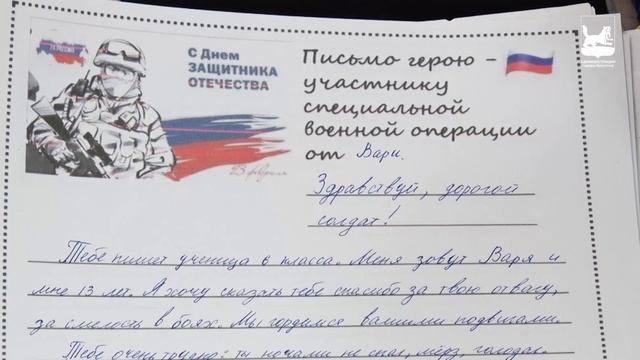 ZА РОССИЮ
С Днем
ЗАЩИТНИКА
ОТЕЧЕСТВА
23 февраля
Письмо герою –
участнику
специальной
военной операции
от Вари.
Здравствуй, дорогой
солдат!
Тебе пишет ученица 6 класса. Меня зовут Варя и
мне 13 лет. Я хочу сказать тебе спасибо за твою отвагу,
за смелость в боях. Мы гордимся вашими подвигами.
Тебе очень трудно: ты ночами не спал, мёрз, голодал.